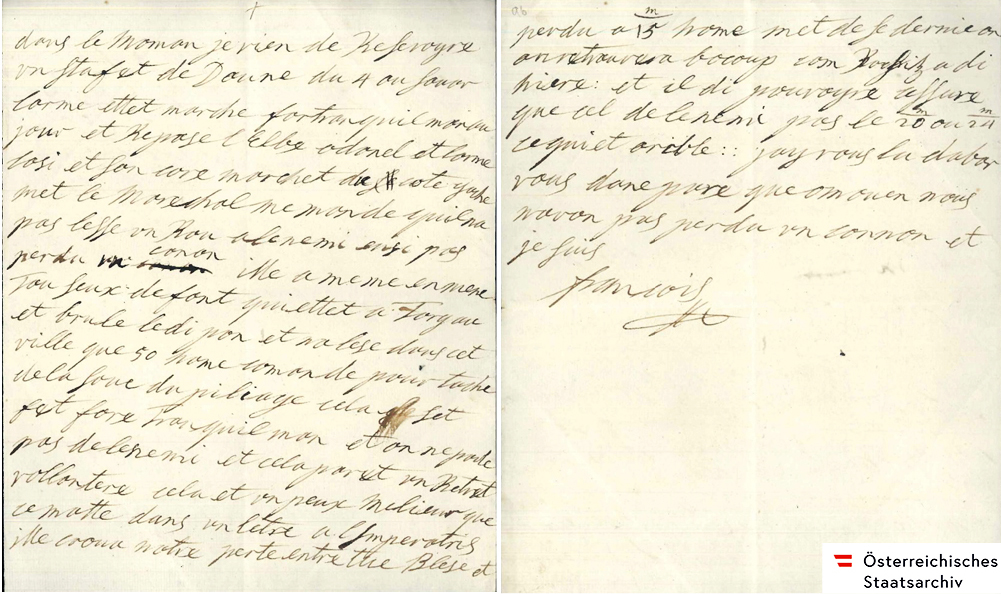 dans le moman je vien de Resevoyre
un stafet de Doune du 4 au souar
larme ettet marche fortranquilman au
jour et Repase l'Elbe a donel et larme
Lasi et son core marchet du cote goche
met le Marechal me mande quil na
pas lesse un Rou a lenemi ensi pas
perdu un canon ille a meme enmene
Tou seux de font qui ettet a Torgau
et brule ledi pon et na lese dans cet
ville que 50 home comande pour tache
de la sove du piliage cela set
fet fore Tranquilman et on ne parle
pas de lenemi et cela paret un Retret
vollontere cela et un peux melieur que
ce matte dans un letre a l'Imperatris
ille crova notre perte entre tue Blese et
ab
perdu a 15 m home met de se dernie on
an retrouvera bocoup com a di
hiere: et il di pouvoyre assure
que cel de lenemi pas le 20 m ou 24 m
ce qui et orible :: jay vous lu dabor
vous dane pare que omouen nous
navon pas perdu un connon et
je suis
francois
Österreichisches
Staatsarchiv